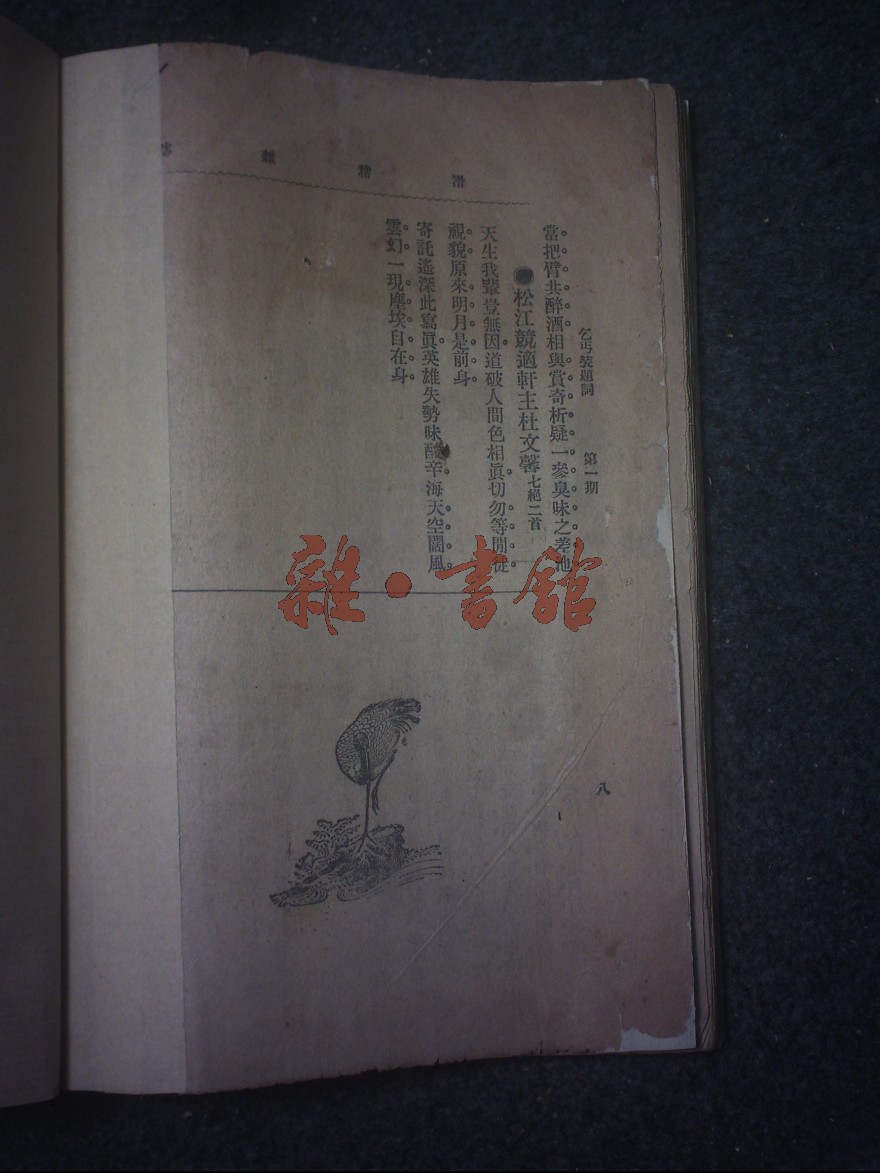 滑稽雜誌
乞丐裝題詞 第一期
八
當把臂共醉酒相與賞奇析疑一參臭味之差池
●松江競適軒主杜文馨七絕二首
天生我輩豈無因道破人間色相眞切勿等閒從
視貌原來明月是前身
寄託遙深此寫眞英雄失勢味酸辛海天空闊風
雲幻一現塵埃自在身
雜·書館